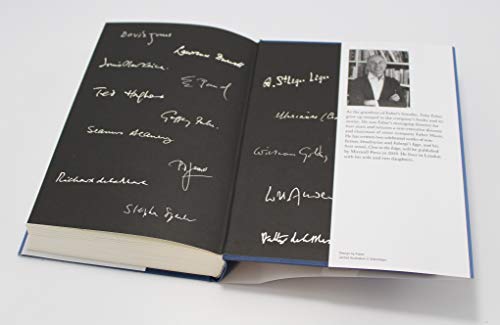 David Jones
Lawrence Durrell
E Pound
Ted Hughes
Geoffrey Faber
Seamus Heaney
Richard de la Mare
Stephen Spender
William Golding
W H Auden
As the grandson of Faber's founder, Toby Faber
grew up steeped in the company's books and its
stories. He was Faber's managing director for
four years and remains a non-executive director
and chairman of sister company Faber Music.
He has written two celebrated works of non-
fiction, Stradivarius and Fabergé's Eggs, and his
first novel, Close to the Edge, will be published
by Muswell Press in 2019. He lives in London
with his wife and two daughters.
Design by Faber